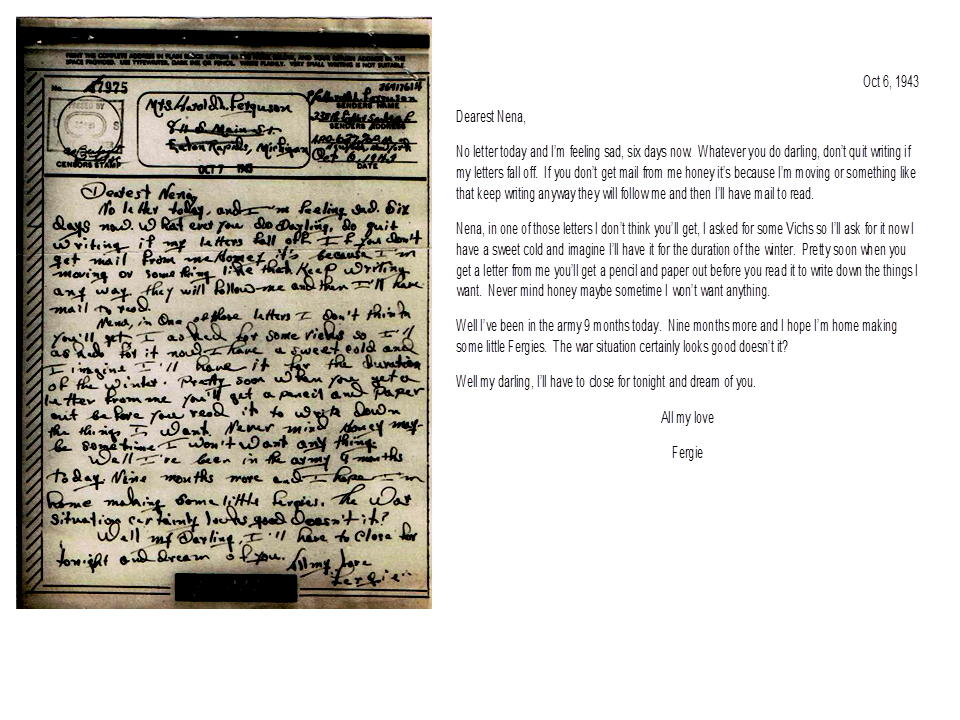 PRINT THE COMPLETE ADDRESS IN PLAIN BLOCK LETTERS IN THE AND YOUR RETURN ADDRESS IN THE
SPACE PROVIDED. USE TYPEWRITER, DARK INK OR PENCIL. WRITE PLAINLY. VERY SMALL WRITING IS NOT SUITABLE.
No. 47975
Mrs Harold M. Ferguson
711 S Main St.
Eaton Rapids, Michigan
SENDERS NAME
SENDERS ADDRESS
Oct 6 1943
DATE
CENSORS STAMP
OCT 7 1943
Dearest Nena,
No letter today, and I'm feeling sad. Six
days now. What ever you do Darling, do quit
writing if my letters fall off. If you don't
get mail from me Honey it's because I'm
moving or something like that keep writing
any way they will follow me and then I'll have
mail to read.
Nena, in one of those letters I don't think
you'll get, I asked for some vicks so I'll
ask for it now I have a sweet cold and
I imagine I'll have it for the duration
of the winter. Pretty soon when you get a
letter from me you'll get a pencil and paper
out before you read it to write down
the things I want. Never mind Honey may-
be sometime I won't want any thing.
Well I've been in the army 9 months
today. Nine months more and I hope I'm
home making some little fergies. The war
situation certainly looks good doesn't it?
Well my Darling, I'll have to close for
tonight and dream of you. All my love
Fergie
Oct 6, 1943
Dearest Nena,
No letter today and I'm feeling sad, six days now. Whatever you do darling, don't quit writing if
my letters fall off. If you don't get mail from me honey it's because I'm moving or something like
that keep writing anyway they will follow me and then I'll have mail to read.
Nena, in one of those letters I don't think you'll get, I asked for some Vichs so I'll ask for it now I
have a sweet cold and imagine I'll have it for the duration of the winter. Pretty soon when you
get a letter from me you'll get a pencil and paper out before you read it to write down the things I
want. Never mind honey maybe sometime I won't want anything.
Well I've been in the army 9 months today. Nine months more and I hope I'm home making
some little Fergies. The war situation certainly looks good doesn't it?
Well my darling, I'll have to close for tonight and dream of you.
All my love
Fergie